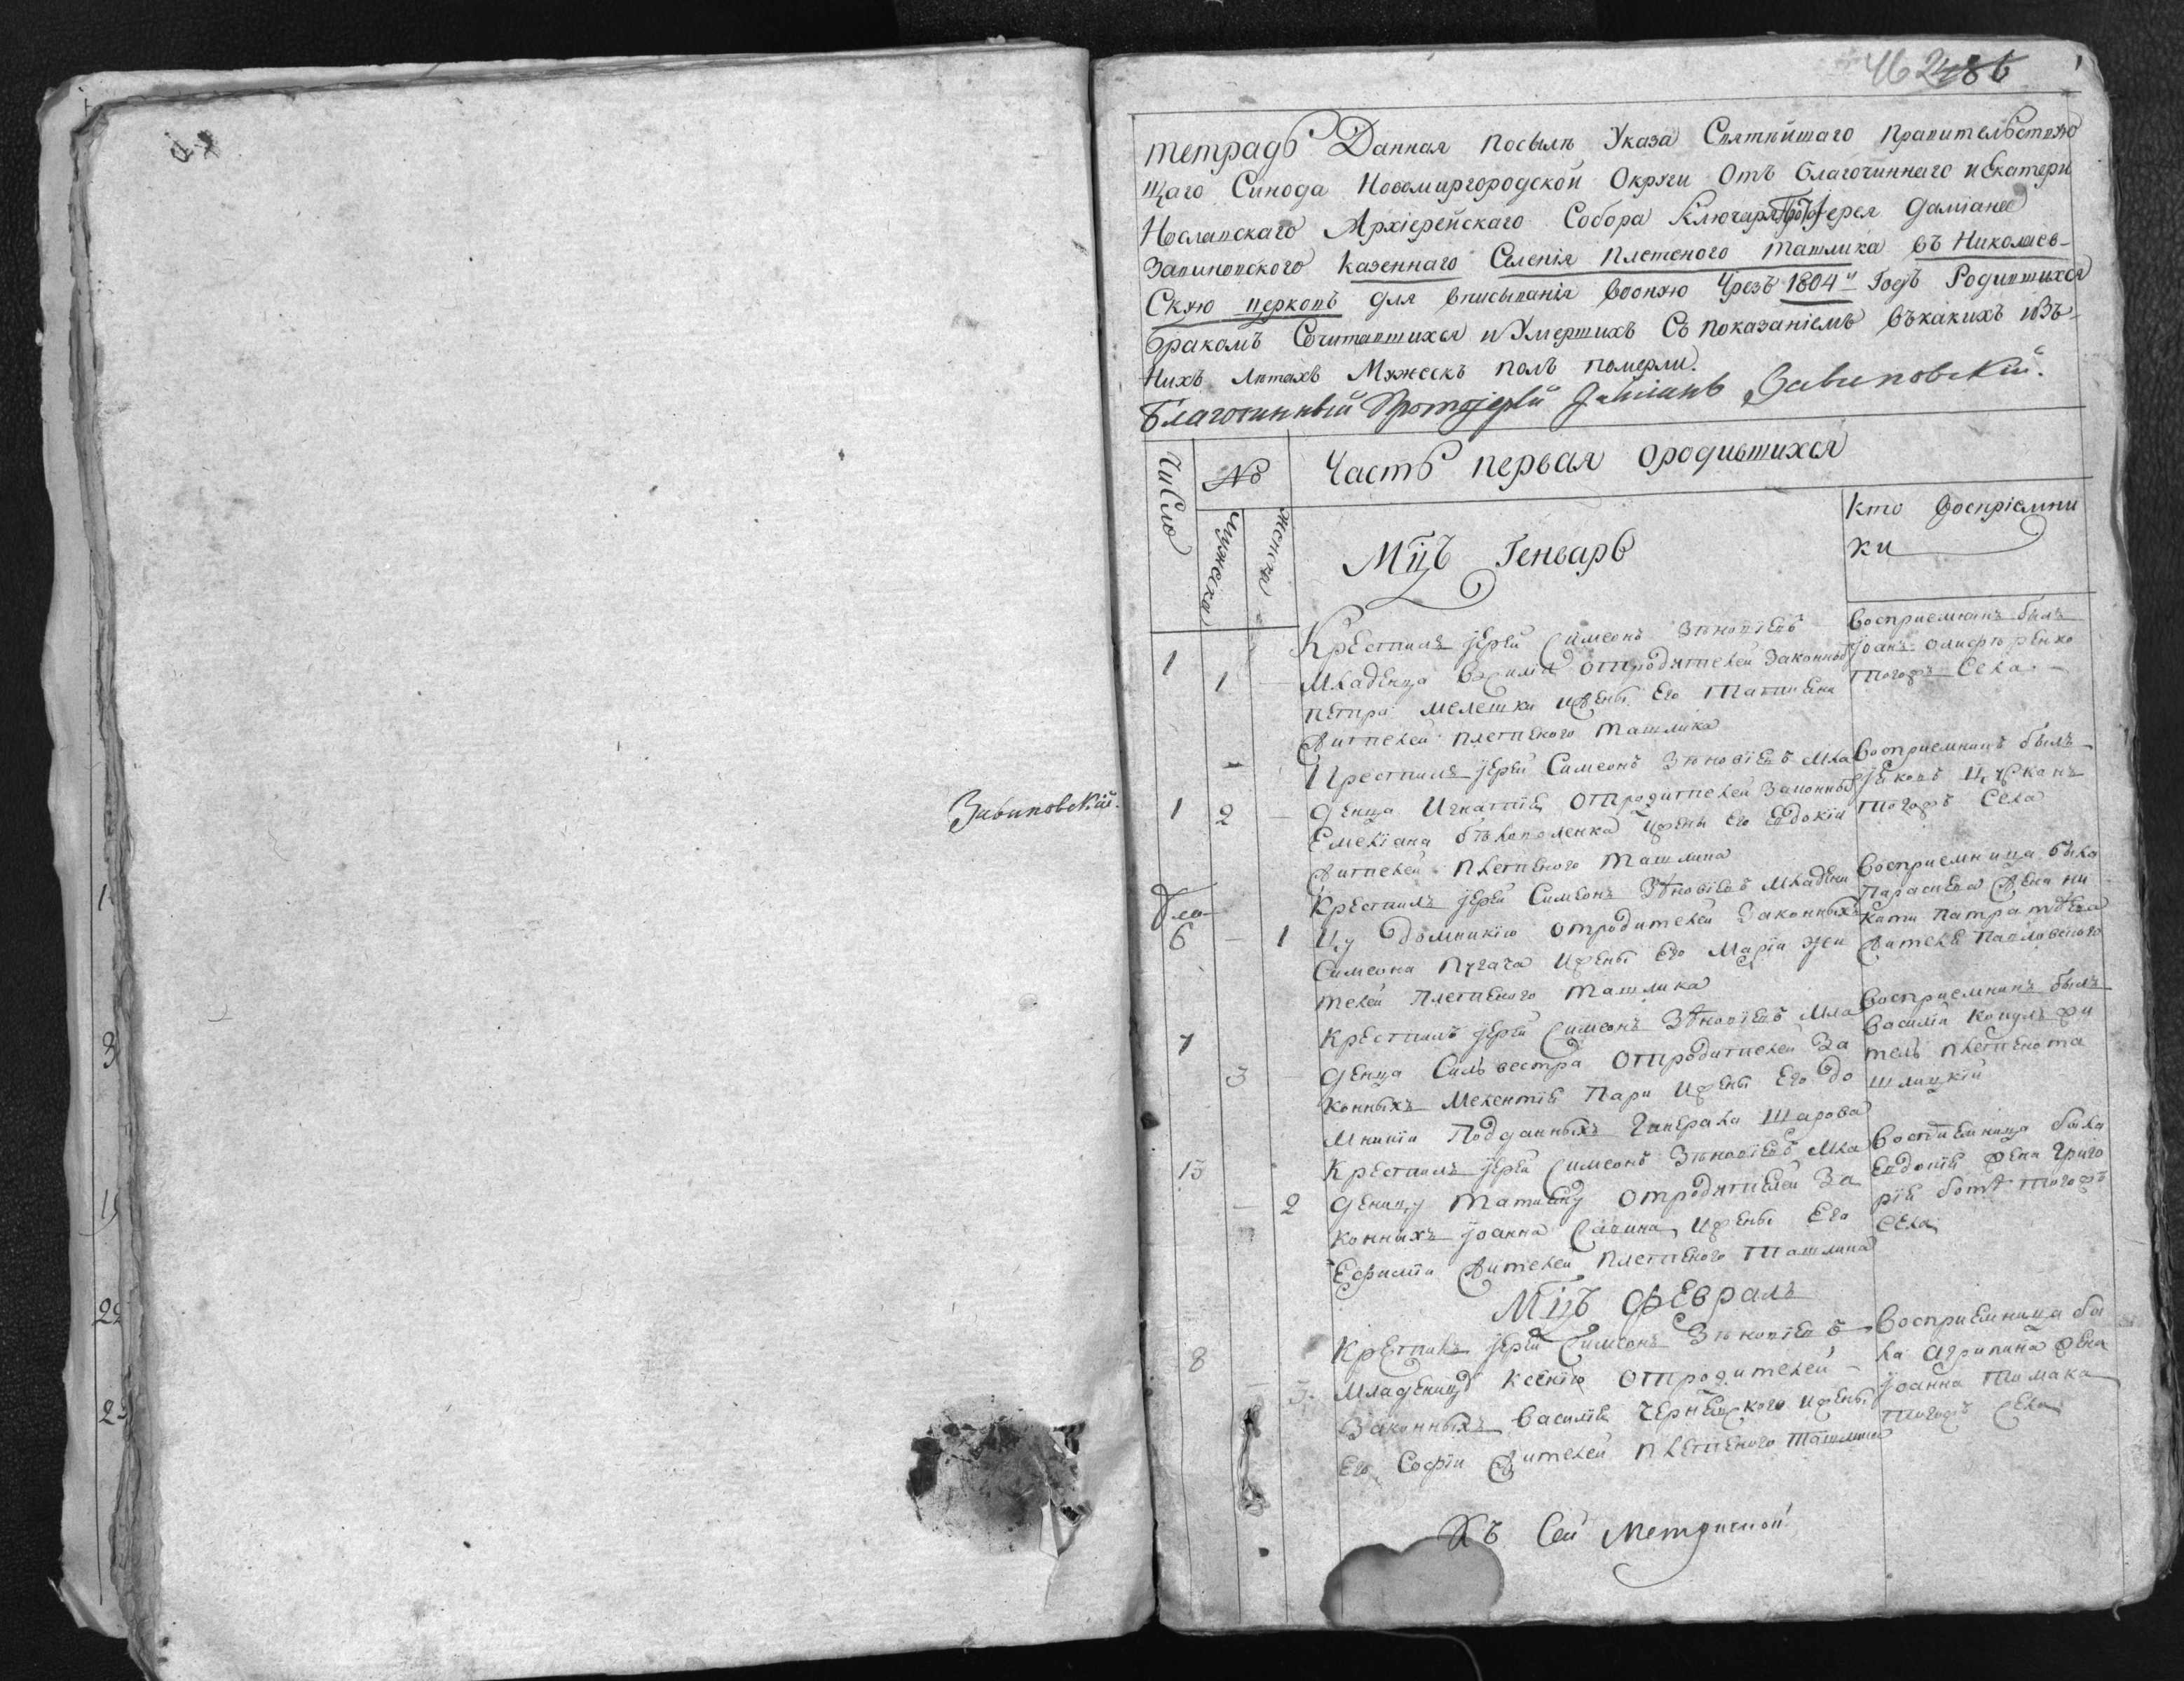 46 2486
тетрадь Данная посылѣ Указа Святѣйшаго правительствую
щаго Синода Новомиргородской Округи Отъ благочиннаго и Екатери
нославскаго Архіерейскаго Собора Ключаря Протоіерея Даміана
Завиновского казеннаго Селенія плетеного ташлика въ Николаев-
скую церковь для вписыванія вооную Чрезъ 1804й Годъ Родившихся
бракомъ Сочитавшихся и Умершихъ Съ показаніемъ въкакихъ изъ-
нихъ лѣтахъ Мужескъ полъ померли.
Благочинный Протоіерей Даміанъ Завиновскій.
Завиновскій
Число
№
Часть первая ородившихся
мужеска
женска
Мцъ Генварь
Кто Воспріемни
ки
1
1
Крестилъ іерей Симеонъ Зѣновіевъ
Младенца Василія отродителей Законныхъ
петра мелешки ижены Его татияни
жителей плетеного ташлика
Восприемникъ былъ
іоанъ
тогожъ Села
1 2
Крестилъ іерей Симеонъ Зѣновіевъ Мла
денца Игнатія отродителей Законныхъ
Емеліана ижены Его Евдокіи
жителей плетеного ташлика
Восприемникъ былъ
іяковъ Цусканъ
тогожъ Села
6 – 1
Крестилъ іерей Симеонъ Зѣновіевъ Младени
цу домникію отродителей Законныхъ
Симеона Пугача ижены Его Маріи жи
телей плетеного ташлика
Восприемница была
Параскева жена ни
кити
жителя Павловского
7
3
Крестилъ іерей Симеонъ Зѣновіевъ Мла
денца Сильвестра отродителей За
конныхъ Мелентія Пари ижены Его до
мникіи Подданныхъ Генерала Шарова
Восприемникъ былъ
Василій жи
тель плетенота
шлицкій
15
– 2
Крестилъ іерей Симеонъ Зѣновіевъ Мла
деницу татияну отродителей За
конныхъ іоанна Савина ижены Его
Ефиміи жителей плетеного ташлика
Восприемница была
Евдокія жена Григо
рія тогожъ
Села
Мцъ февраль
8
– 3
Крестилъ іерей Симеонъ Зѣновіевъ
Младеницу Ксенію отродителей
Законныхъ Василія ижены
Его Софіи жителей плетеного ташлика
Восприемница бы
ла агрипина жена
іоанна
тогожъ Села
Къ Сей Метрической